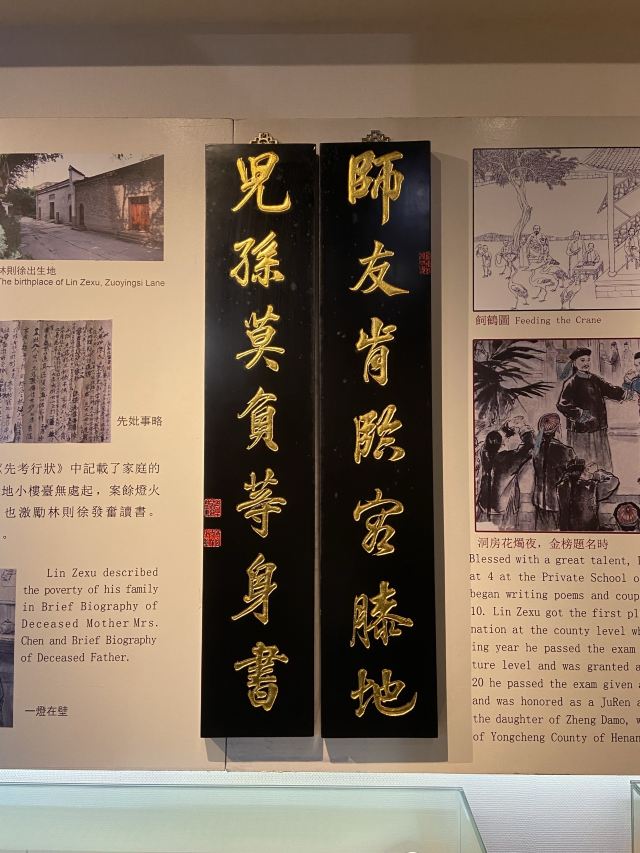 師友肯臨容膝地
兒孫莫負等身書
林則徐出生地
The birthplace of Lin Zexu, Zuoyingsi Lane
先妣事略
《先考行狀》中記載了家庭的
地小樓臺無處起，案餘燈火
也激勵林則徐發奮讀書。
。
Lin Zexu described
the poverty of his family
in Brief Biography of
Deceased Mother Mrs.
Chen and Brief Biography
of Deceased Father.
一燈在壁
飼鶴圖 Feeding the Crane
洞房花燭夜，金榜題名時
Blessed with a great talent,
at 4 at the Private School o
began writing poems and coup
10. Lin Zexu got the first pl
nation at the county level wh
ing year he passed the exam
ture level and was granted a
20 he passed the exam given a
and was honored as a JuRen a
the daughter of Zheng Damo, w
of Yongcheng County of Henan